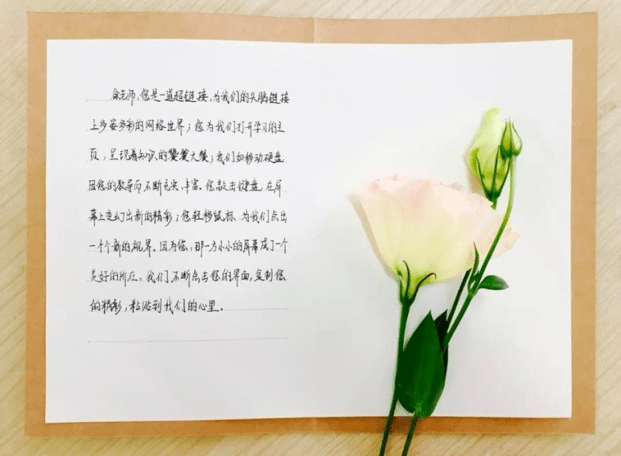 俞老师，您是一道超链接，为我们的头脑链接
上多姿多彩的网络世界；您为我们打开学习的主
页，呈现着知识的饕餮大餐；我们如移动硬盘
因您的教导而不断充实、丰富。您敲击键盘，在屏
幕上变幻出新的精彩；您轻移鼠标，为我们点出
一个个新的视界。因为您，那一方小小的屏幕成了一个
美好的所在，我们不断点击您的界面，复制您
的精彩，粘贴到我们的心里。